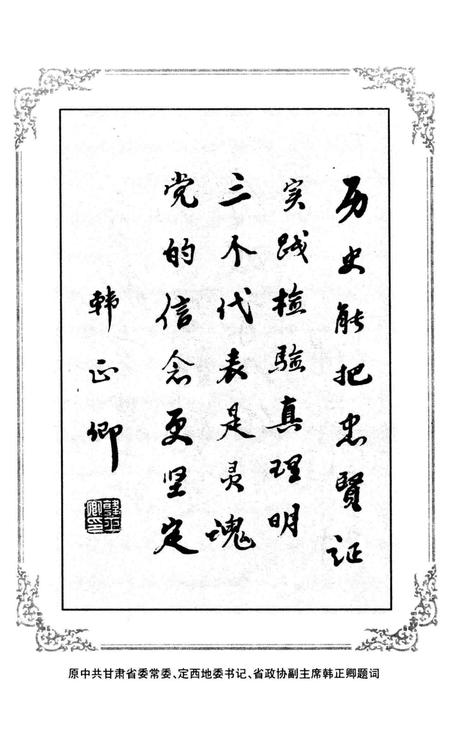 历史能把忠贤证
实践检验真理明
三个代表是灵魂
党的信念更坚定
韩正卿
原中共甘肃省委常委、定西地委书记、省政协副主席韩正卿题词